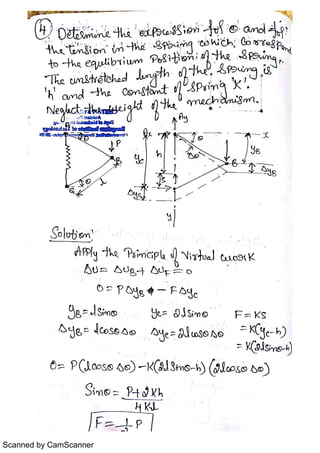 ④ Determine the expression for θ and for
the tension in the spring which corresponds
to the equilibrium position of the spring.
The unstretched length of the spring is
'h' and the constant of spring 'K'.
Neglect the weight of the mechanism.
Solution:
Apply the Principle of Virtual work
ΔU = ΔUB + ΔUF = 0
0 = PΔyB - FΔyc
yB = lsinθ yc = 2lsinθ F = KS
ΔyB = lcosθΔθ Δyc = 2lcosθΔθ = K(yc-h)
= K(2lsinθ-h)
0 = P(lcosθΔθ) - K(2lsinθ-h)(2lcosθΔθ)
Sinθ = P+2Kh
4Kl
F = 1/2 P
Scanned by CamScanner